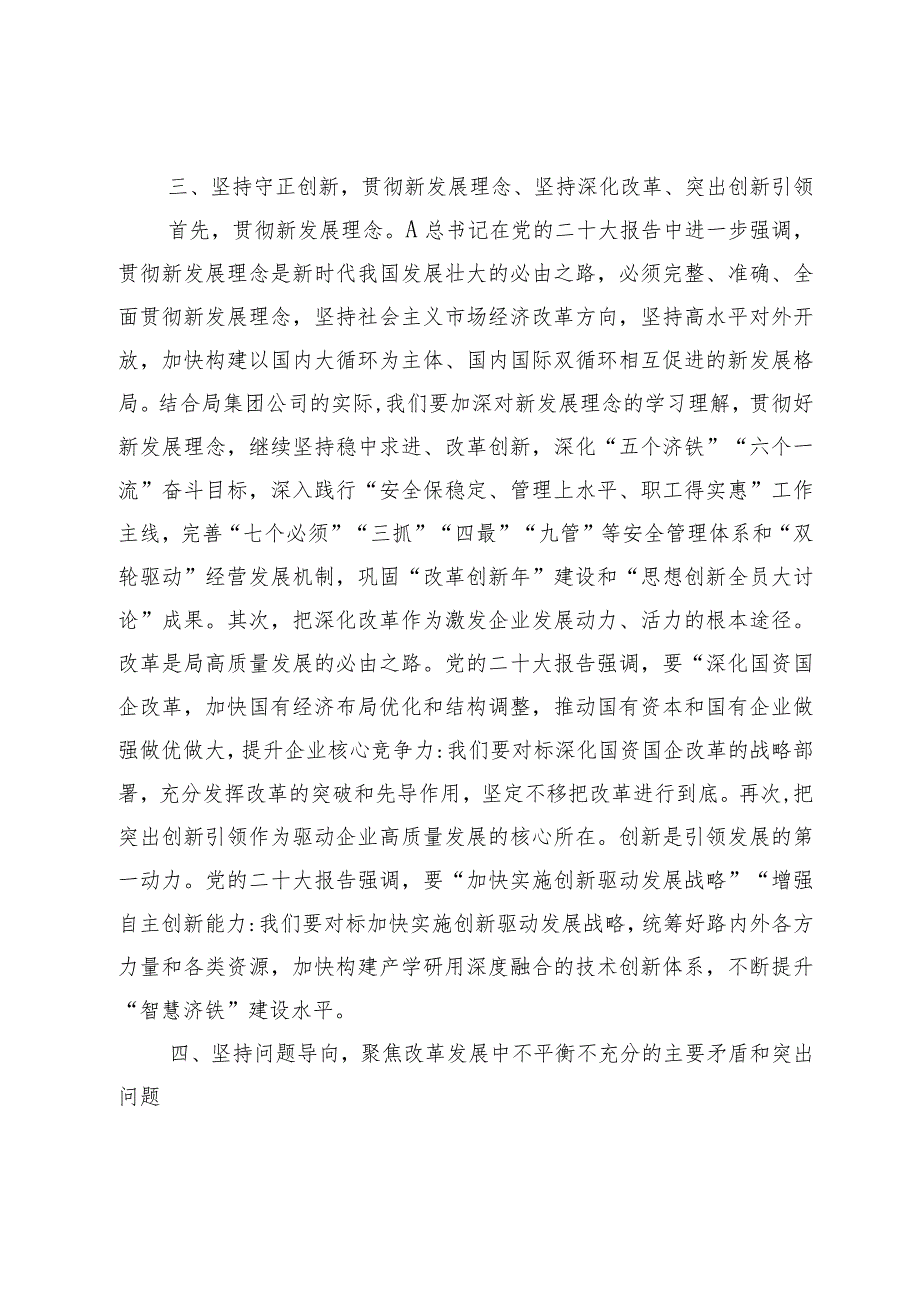 三、坚持守正创新，贯彻新发展理念、坚持深化改革、突出创新引领
首先，贯彻新发展理念。A 总书记在党的二十大报告中进一步强调，
贯彻新发展理念是新时代我国发展壮大的必由之路，必须完整、准确、全
面贯彻新发展理念，坚持社会主义市场经济改革方向，坚持高水平对外开
放，加快构建以国内大循环为主体、国内国际双循环相互促进的新发展格
局。结合局集团公司的实际,我们要加深对新发展理念的学习理解，贯彻好
新发展理念，继续坚持稳中求进、改革创新，深化“五个济铁”“六个一
流”奋斗目标，深入践行“安全保稳定、管理上水平、职工得实惠”工作
主线，完善“七个必须”“三抓”“四最”“九管”等安全管理体系和“双
轮驱动”经营发展机制，巩固“改革创新年”建设和“思想创新全员大讨
论”成果。其次，把深化改革作为激发企业发展动力、活力的根本途径。
改革是局高质量发展的必由之路。党的二十大报告强调，要“深化国资国
企改革，加快国有经济布局优化和结构调整，推动国有资本和国有企业做
强做优做大，提升企业核心竞争力:我们要对标深化国资国企改革的战略部
署，充分发挥改革的突破和先导作用，坚定不移把改革进行到底。再次,把
突出创新引领作为驱动企业高质量发展的核心所在。创新是引领发展的第
一动力。党的二十大报告强调，要“加快实施创新驱动发展战略”“增强
自主创新能力:我们要对标加快实施创新驱动发展战略，统筹好路内外各方
力量和各类资源，加快构建产学研用深度融合的技术创新体系，不断提升
“智慧济铁”建设水平。
四、坚持问题导向，聚焦改革发展中不平衡不充分的主要矛盾和突出
问题